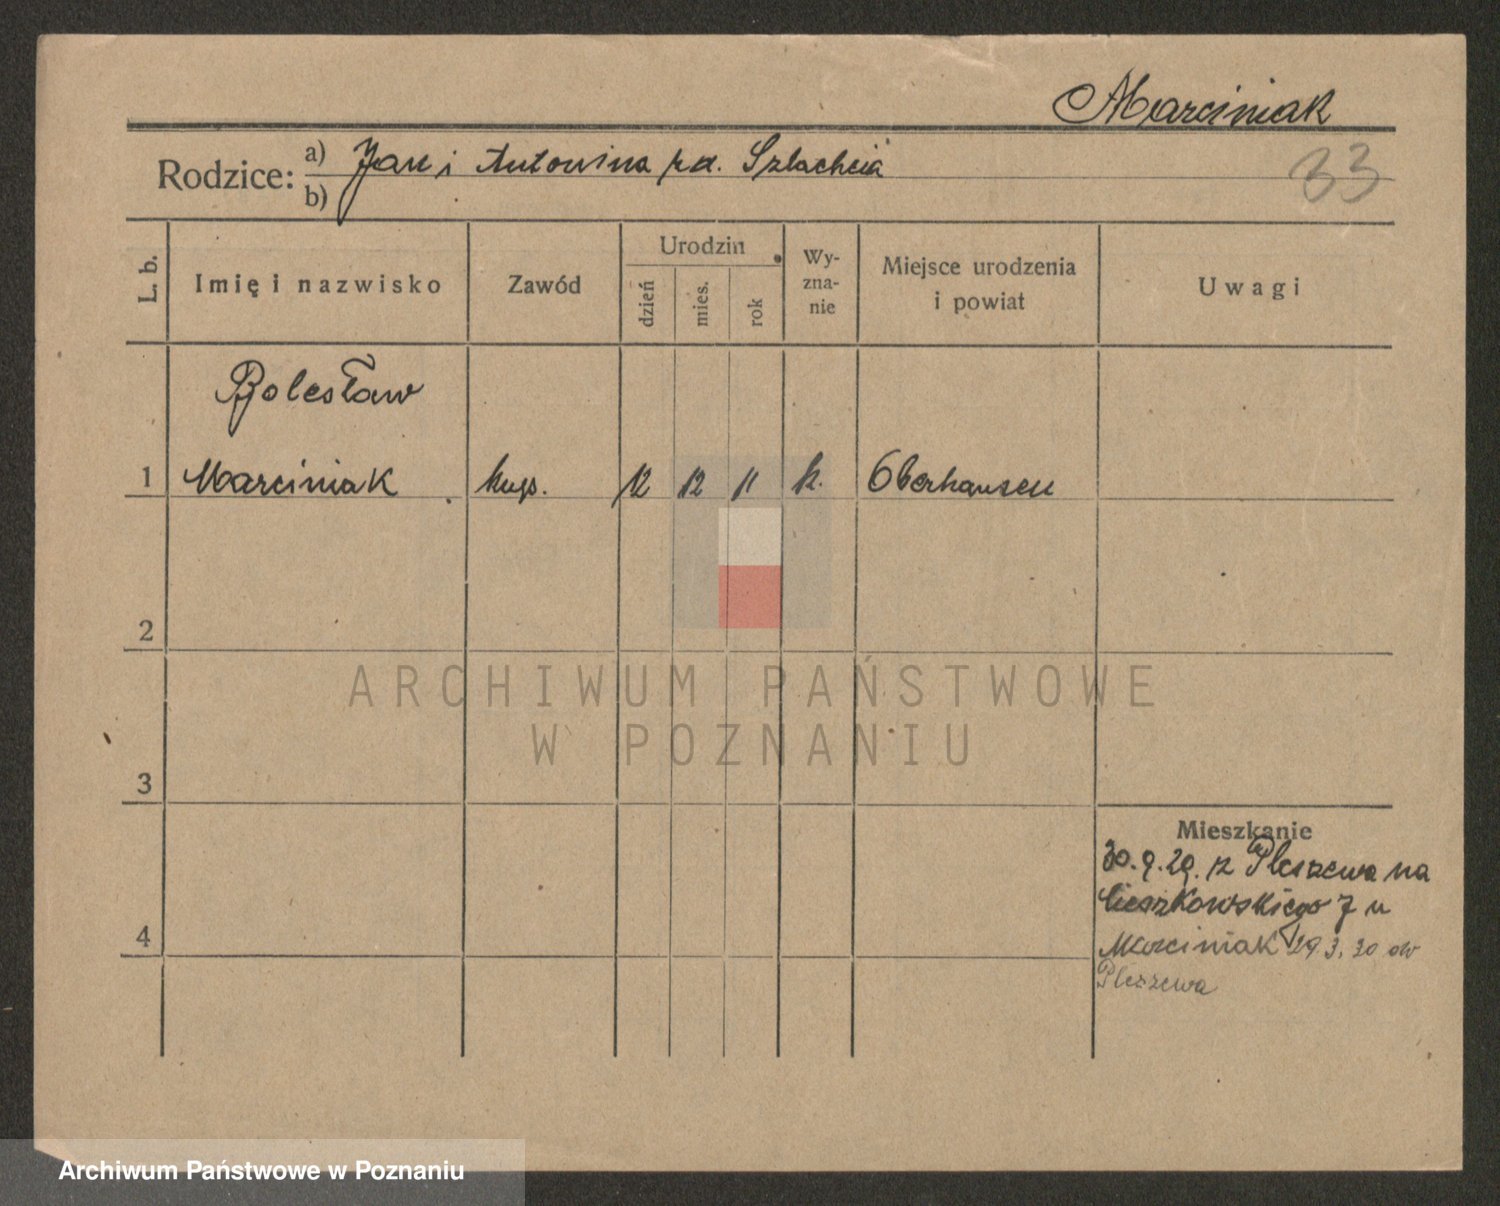 Marciniak
33
Rodzice: a) Jan i Antonina zd. Szlachcia
b)
L. b.
Imię i nazwisko
Zawód
Urodzin
dzień
mies.
rok
Wy-
zna-
nie
Miejsce urodzenia
i powiat
Uwagi
Bolesław
1 Marciniak kups. 12 12 11 k. Oberhausen
2
3
4
Mieszkanie
30.9.29. z Pleszewa na
Cieszkowskiego 7 u
Marciniak 29.3.30 do
Pleszewa
ARCHIWUM PAŃSTWOWE
W POZNANIU
Archiwum Państwowe w Poznaniu